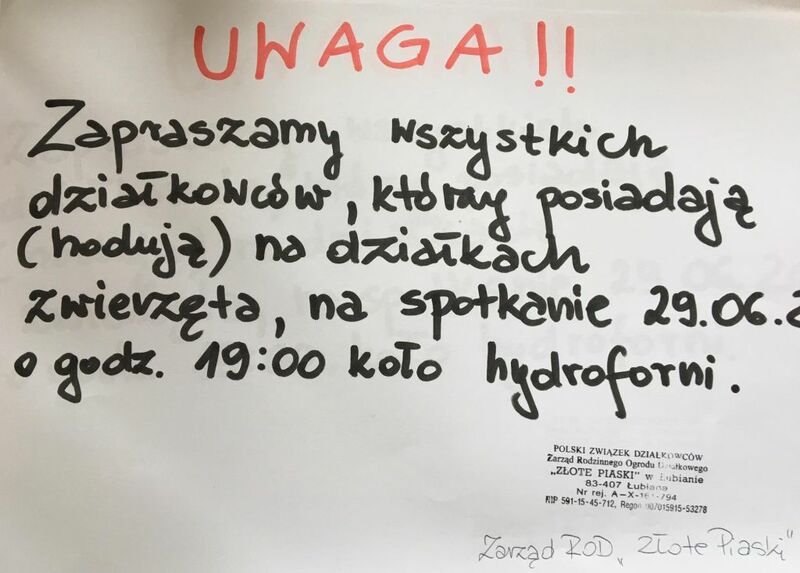 UWAGA !!
Zapraszamy wszystkich
działkowców, którzy posiadają
(hodują) na działkach
zwierzęta, na spotkanie 29.06.2
o godz. 19:00 koło hydroforni.
POLSKI ZWIĄZEK DZIAŁKOWCÓW
Zarząd Rodzinnego Ogrodu Działkowego
„ZŁOTE PIASKI” w Łubianie
83-407 Łubiana
Nr rej. A-X-161-794
NIP 591-15-45-712, Regon 007015915-53278
Zarząd ROD „Złote Piaski”